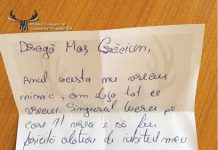 Dragă Moș Crăciun,
Anul acesta nu vreau
nimic, am deja tot ce
vreau. Singurul lucru pe
care îl vreau e să fiu
fericită alături de iubitul meu